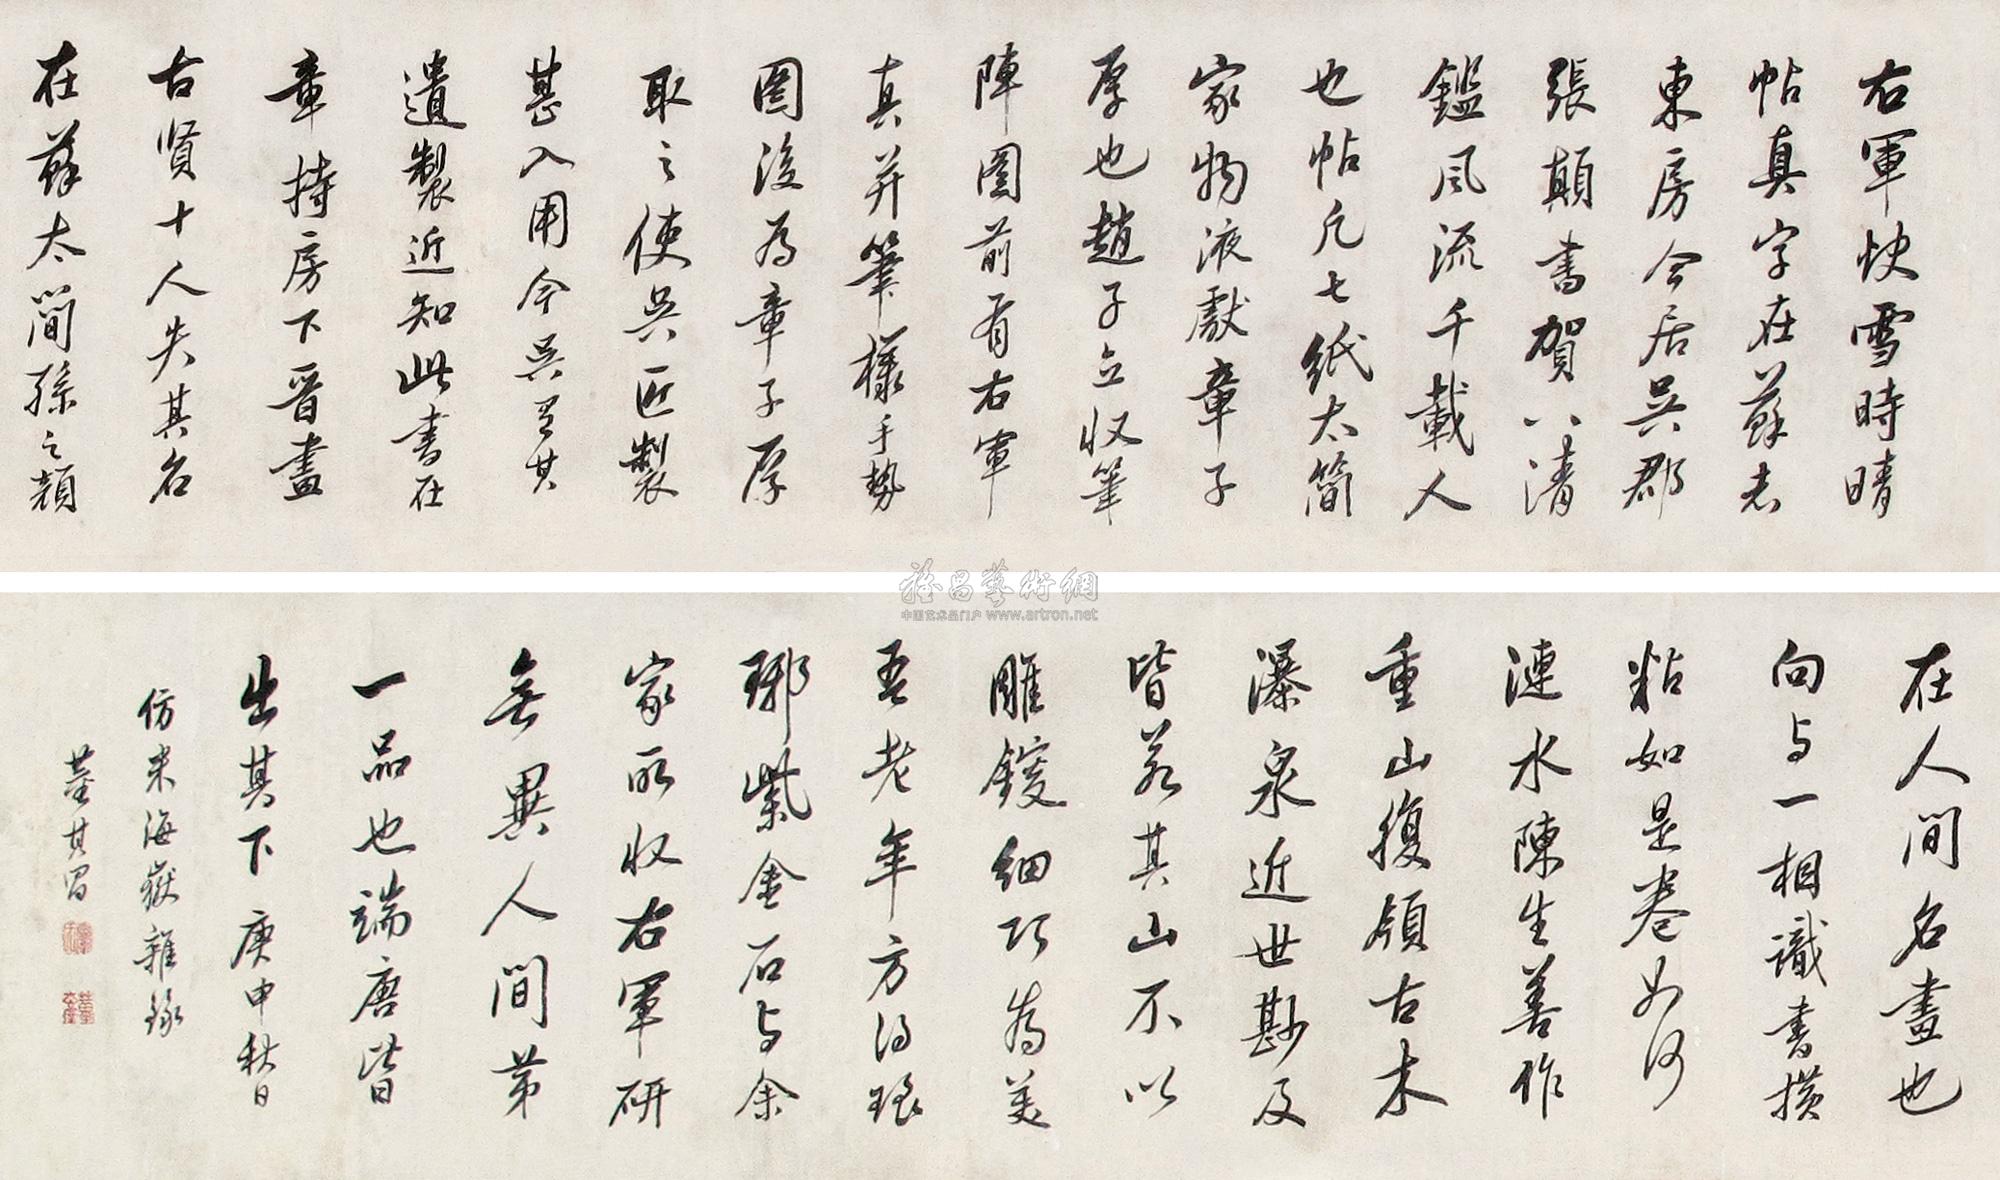 右軍快雪時晴
帖真字在蘇志
東房今居吳郡
張顛書賀八清
鑑風流千載人
也帖凡七紙太簡
家物液獻章子
厚也趙子立收筆
陣圖前有右軍
真并筆樣手勢
圖後為章子厚
取之使吳匠製
甚入用今吳有其
遺製近知此書在
章持房下晉畫
古賢十人失其名
在蘇太簡孫之顏
在人間名畫也
向与一相識書橫
粘如是卷如何
漣水陳生善作
重山複嶺古木
瀑泉近世尠及
皆若其山不以
雕鎪細巧為美
吾老年方得琅
琊紫金石与余
家所收右軍研
無異人間第
一品也端唐皆
出其下 庚申秋日
仿米海嶽雜錄
董其昌
雅昌藝術網
中国艺术品门户 www.artron.net